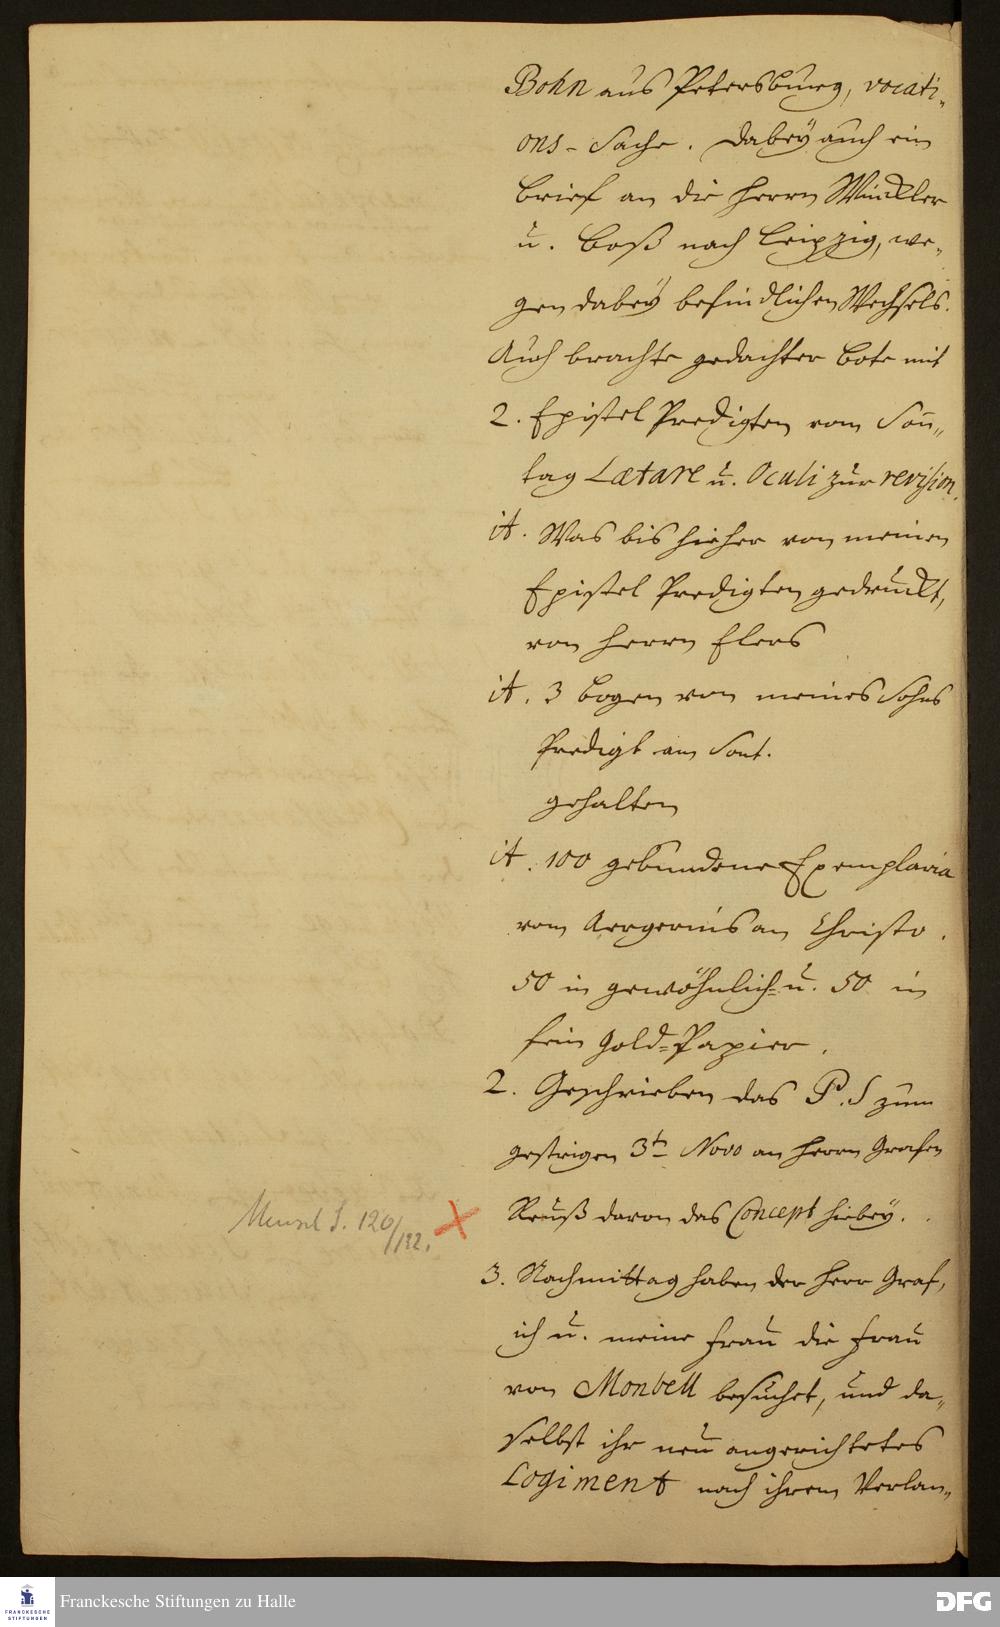 Bohn aus Petersburg, vocati-
ons-Sache. Dabey auch ein
Brief an die Herrn Winckler
u. Boß nach Leipzig, we-
gen dabey befindlichen Wechsels.
Auch brachte gedachter Bote mit
2. Epistel Predigten vom Son̄-
tag Lætare u. Oculi zur revision.
it. Was bis hieher von meinen
Epistel Predigten gedruckt,
von Herrn Elers
it. 3 Bogen von meines Sohns
Predigt am Sont.
gehalten
it. 100 gebundene Exemplaria
vom Aergernis an Christo.
50 in gewöhnlich- u. 50 in
fein Gold-Papier.
2. Geschrieben das P.S zum
gestrigen 3t. Novo an Herrn Grafen
Reuß davon das Concept hiebey.
120/122.
3. Nachmittag haben der Herr Graf,
ich u. meine Frau die Frau
von Monbell besuchet, und da-
selbst ihr neu angerichtetes
Logiment nach ihrem Verlan-
Franckesche Stiftungen zu Halle
FRANCKESCHE
STIFTUNGEN
DFG